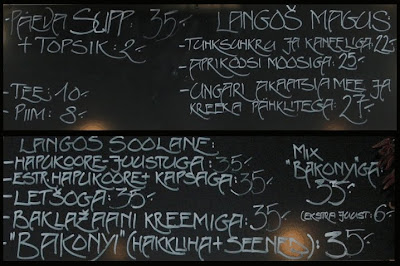 - PAEDA SUPP: 35.-
+ TOPSIK: 2.-
- TEE: 10.-
- PIIM: 8.-
LANGOŠ MAGUS
- TUHKSUHKRU JA KANEELIGA: 22.-
- APRIKOOSI MOOSIGA: 25.-
- UNGARI AKAATSIAMEE JA
KREEKA PÄHKLITEGA: 27.-
LANGOŠ SOOLANE:
- HAPUKOORE-JUUSTUGA: 35.-
- ESTR. HAPUKOORE + KAPSAGA: 35.-
- LETŠOGA: 35.-
- BAKLAŽAANI KREEMIGA: 35.-
- "BAKONYI" (HAKKLIHA + SEENED): 35.-
MIX
"BAKONYI"GA:
35.-
(EKSTRA JUUST: 6.-